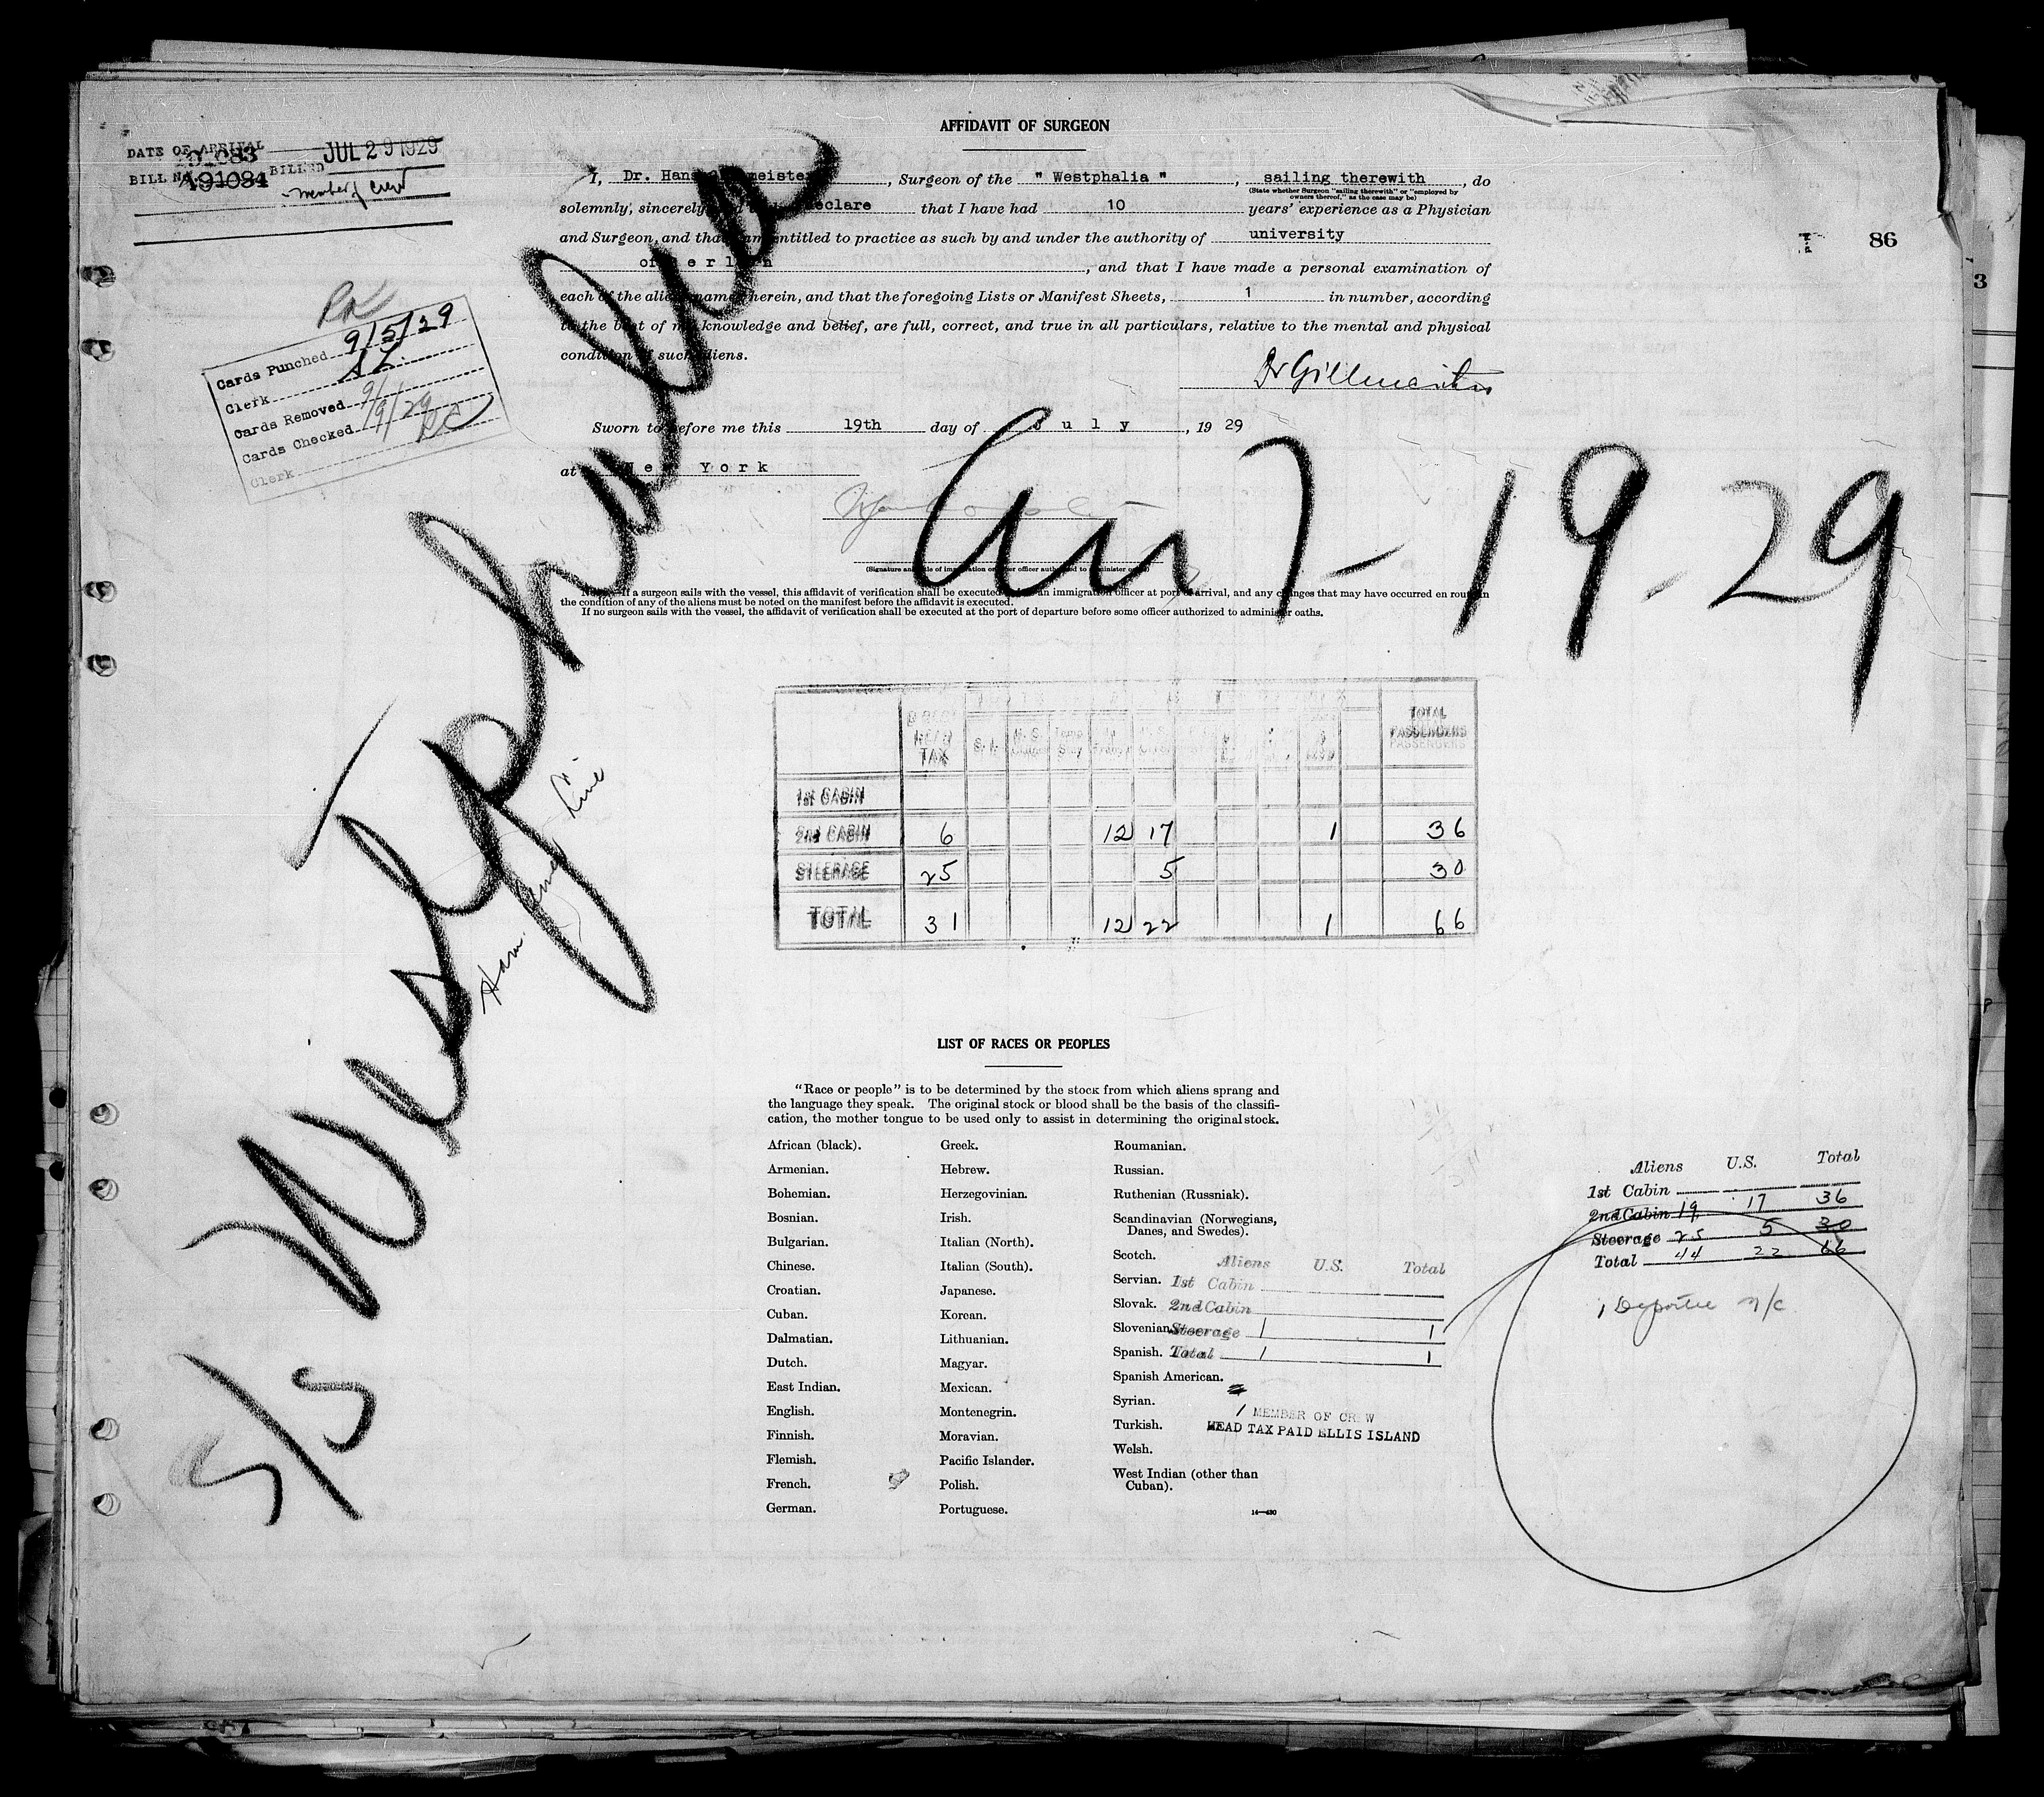 AFFIDAVIT OF SURGEON
DATE OF ARRIVAL
BILL NO. A91084 BILLED JUL 29 1929
- member of crew
I, Dr. Hans, Surgeon of the " Westphalia ", sailing therewith, do
(State whether Surgeon "sailing therewith" or "employed by
owners thereof," as the case may be)
solemnly, sincerely, declare that I have had 10 years' experience as a Physician
and Surgeon, and that I am entitled to practice as such by and under the authority of university
of Berlin, and that I have made a personal examination of
each of the aliens named herein, and that the foregoing Lists or Manifest Sheets, 1 in number, according
to the best of my knowledge and belief, are full, correct, and true in all particulars, relative to the mental and physical
condition of such aliens.
86
3
Cards Punched 9/5/29
Clerk
Cards Removed
Cards Checked 9/9/29
Clerk
Sworn to before me this 19th day of July, 1929
at New York
(Signature and title of immigration or other officer authorized to administer oaths)
Note.—If a surgeon sails with the vessel, this affidavit of verification shall be executed before an immigration officer at port of arrival, and any changes that may have occurred en route in
the condition of any of the aliens must be noted on the manifest before the affidavit is executed.
If no surgeon sails with the vessel, the affidavit of verification shall be executed at the port of departure before some officer authorized to administer oaths.
S/S Westphalia
Arr 7-19-29
Ham Amer Line
HEAD TAX
TOTAL PASSENGERS
1st CABIN
2nd CABIN 6 12 17 1 36
STEERAGE 25 5 30
TOTAL 31 12 22 1 66
LIST OF RACES OR PEOPLES
"Race or people" is to be determined by the stock from which aliens sprang and
the language they speak. The original stock or blood shall be the basis of the classifi-
cation, the mother tongue to be used only to assist in determining the original stock.
African (black).
Armenian.
Bohemian.
Bosnian.
Bulgarian.
Chinese.
Croatian.
Cuban.
Dalmatian.
Dutch.
East Indian.
English.
Finnish.
Flemish.
French.
German.
Greek.
Hebrew.
Herzegovinian.
Irish.
Italian (North).
Italian (South).
Japanese.
Korean.
Lithuanian.
Magyar.
Mexican.
Montenegrin.
Moravian.
Pacific Islander.
Polish.
Portuguese.
Roumanian.
Russian.
Ruthenian (Russniak).
Scandinavian (Norwegians,
Danes, and Swedes).
Scotch.
Servian.
Slovak.
Slovenian.
Spanish.
Spanish American.
Syrian.
Turkish.
Welsh.
West Indian (other than
Cuban).
14—430
Aliens U.S. Total
1st Cabin
2nd Cabin
Steerage 1 1
Total 1 1
1 MEMBER OF CREW
HEAD TAX PAID ELLIS ISLAND
Aliens U.S. Total
1st Cabin
2nd Cabin 19 17 36
Steerage 25 5 30
Total 44 22 66
1 Deportee n/c